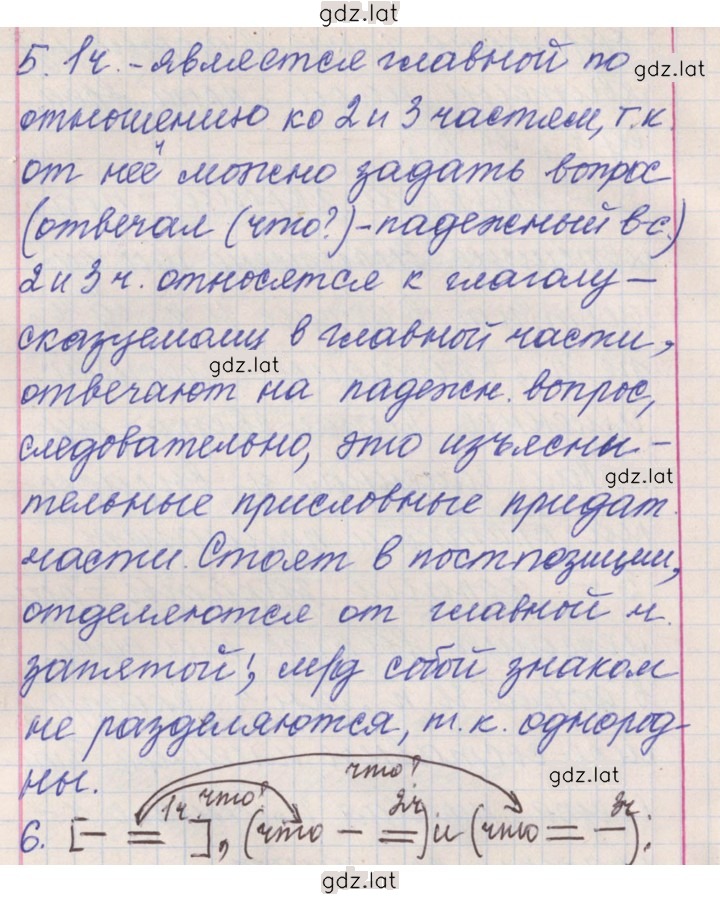 gdz.lat
5. 1ч. - является главной по
gdz.lat
отношению ко 2 и 3 частям, т.к.
от неё можно задать вопрос
(отвечал (что?) - падежный в-с.)
2 и 3 ч. относятся к глаголу -
сказуемому в главной части,
gdz.lat
отвечают на падежн. вопрос,
следовательно, это изъясни-
gdz.lat
тельные присловные придат.
части. Стоят в постпозиции,
отделяются от главной ч.
запятой; м/д собой знаком
не разделяются, т.к. однород-
ны.
что?
gdz.lat
1ч. что? 2ч 3ч
6. [- =], (что - =) и (что = -).
gdz.lat